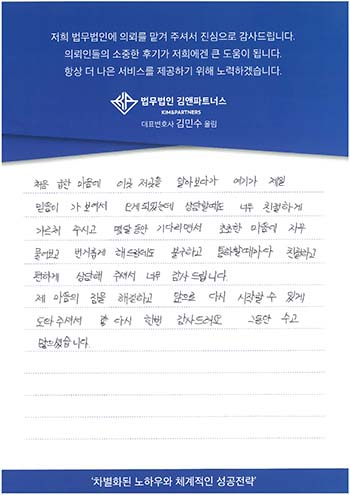 저희 법무법인에 의뢰를 맡겨 주셔서 진심으로 감사드립니다.
의뢰인들의 소중한 후기가 저희에겐 큰 도움이 됩니다.
항상 더 나은 서비스를 제공하기 위해 노력하겠습니다.
법무법인 김앤파트너스
KIM&PARTNERS
대표변호사 김민수 올림
처음 급한 마음에 이곳 저곳을 알아보다가 여기가 제일
믿음이 가 보여서 되었는데 상담할때도 너무 친절하게
가르쳐 주시고 몇달 동안 기다리면서 초조한 마음에 자주
물어보고 번거롭게 해드렸음에도 불구하고 통화할때마다 친절하고
편하게 상담해 주셔서 너무 감사 드립니다.
제 마음의 짐을 해결하고 앞으로 다시 시작할 수 있게
도와주셔서 다시 한번 감사드려요 그동안 수고
많으셨습니다.
'차별화된 노하우와 체계적인 성공전략'